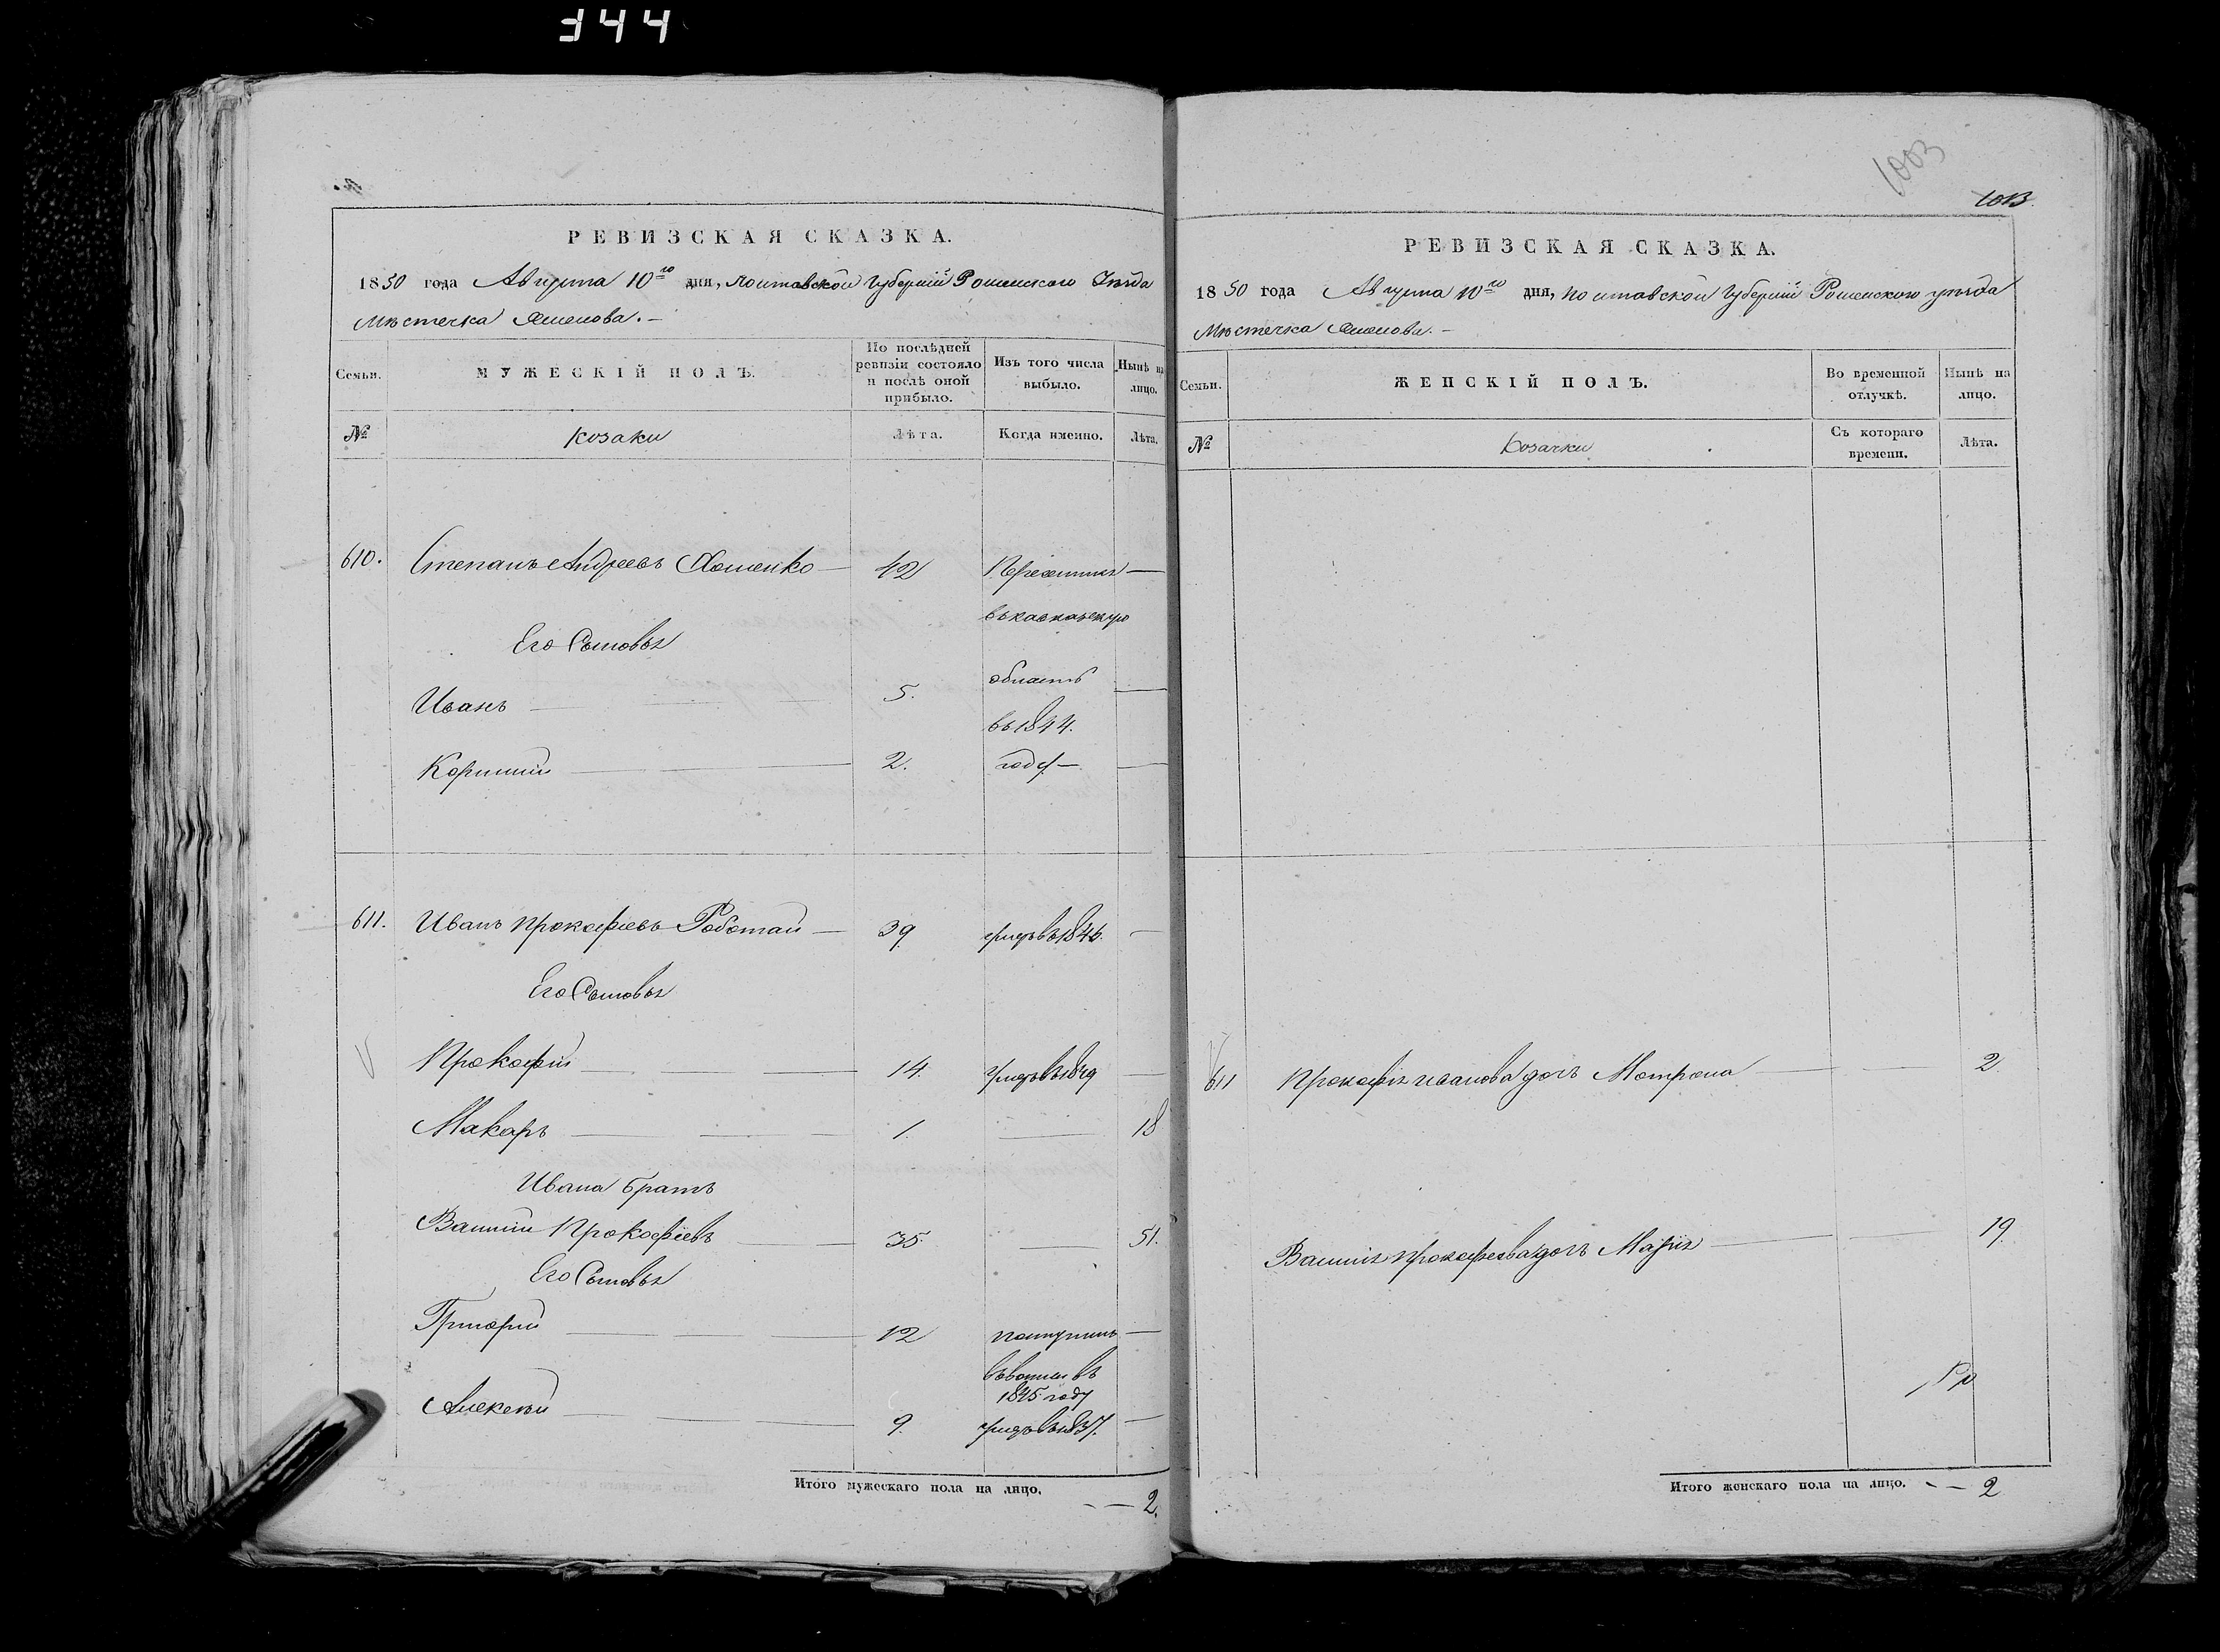 344
РЕВИЗСКАЯ СКАЗКА.
1850 года Августа 10го дня, Полтавской Губерніи Роменского Уѣзда
Мѣстечка
Семьи.
МУЖЕСКІЙ ПОЛЪ.
По послѣдней ревизіи состояло и послѣ оной прибыло.
Изъ того числа выбыло.
Нынѣ на лицо.
№
Козаки
Лѣта.
Когда именно.
Лѣта.
610. Степанъ Андреевъ 42 Переселились
въ кавказскую
Его Сыновья
область
Иванъ 5.
въ 1844.
Корнилий 2. году
611. Иванъ Прокофіевъ Работай 39 умеръ въ
Его Сыновья
Прокофій 14. умеръ въ 1849
Макаръ 1. 18
Ивана братъ
Василий Прокофіевъ 35. 51.
Его Сыновья
Григорий 12 поступилъ
въ 1845 году
Алексѣй 9. умеръ въ 1837.
Итого мужескаго пола на лицо. 2.
1003
1013.
РЕВИЗСКАЯ СКАЗКА.
1850 года Августа 10го дня, Полтавской Губерніи Роменского уѣзда
Мѣстечка
Семьи.
ЖЕНСКІЙ ПОЛЪ.
Во временной отлучкѣ.
Нынѣ на лицо.
№
Козачки
Съ котораго времени.
Лѣта.
611 Прокофія Иванова дочь Мотрона 2
Василия Прокофьева дочь Марія 19.
Итого женскаго пола на лицо. 2